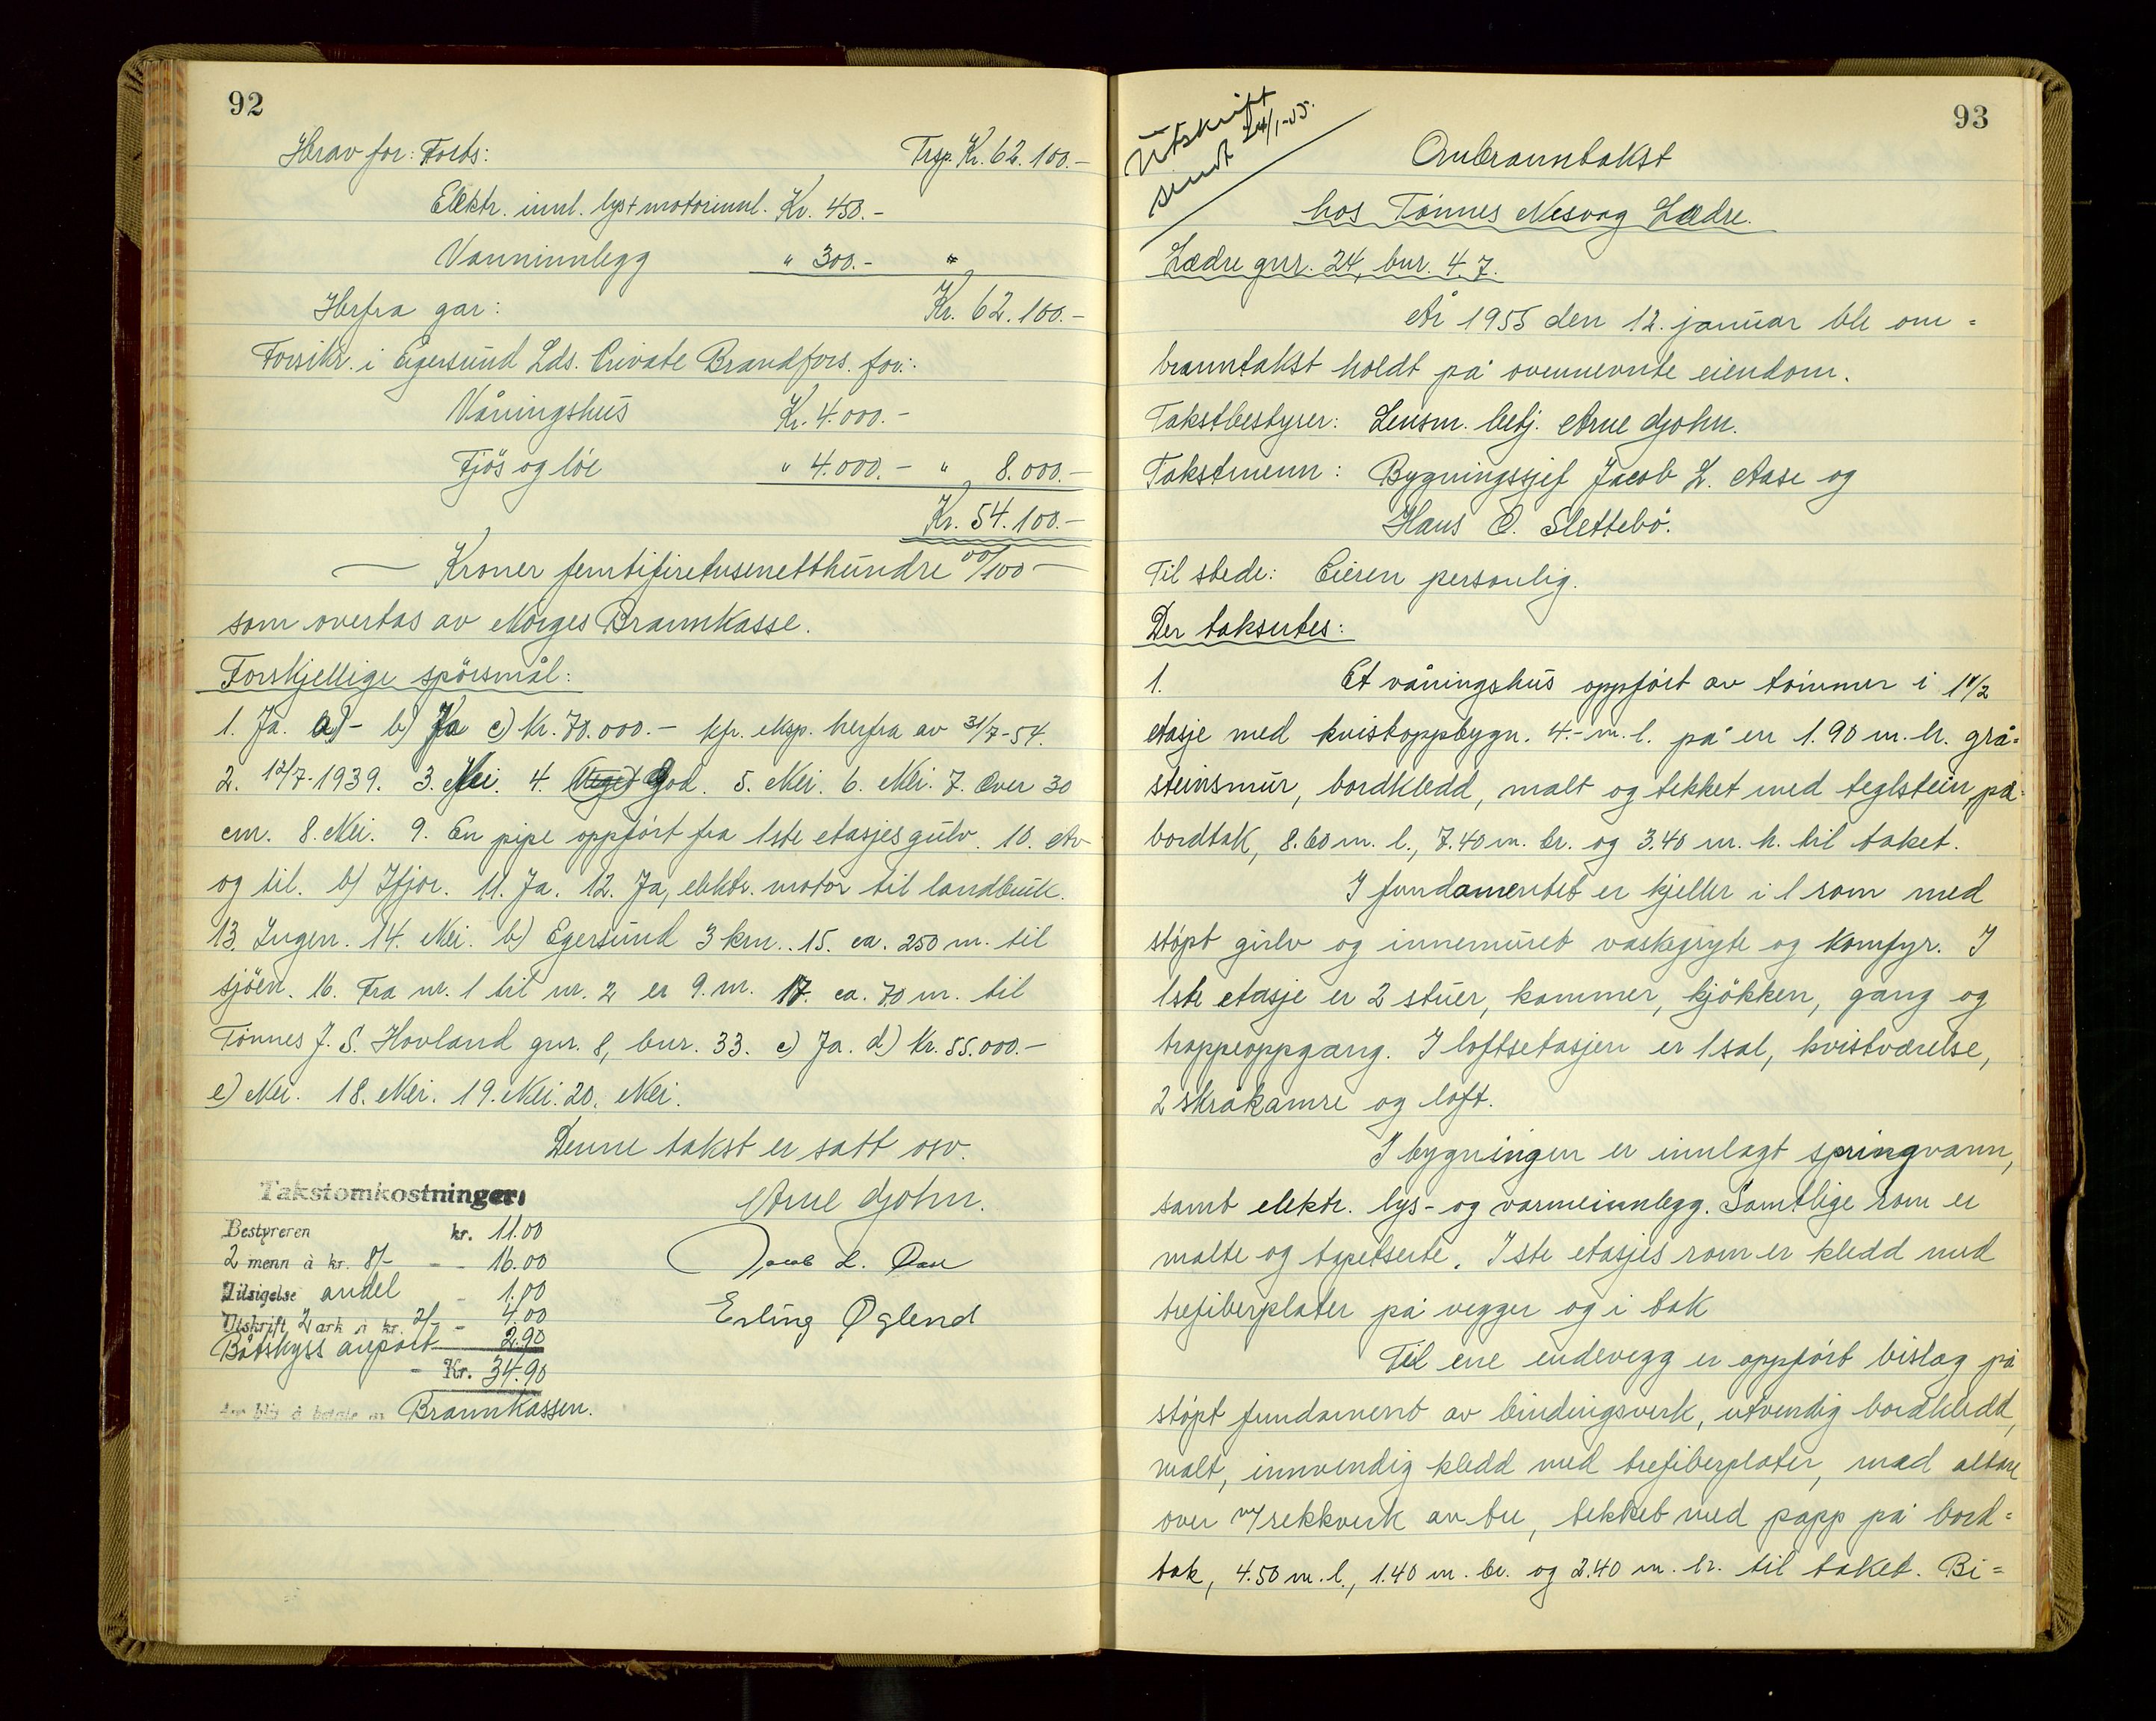 92
Herav for: Forts: Trsp. Kr. 62.100.-
Elektr. innl. lys + motorinnl. Kr. 450.-
Vanninnlegg " 300.- "
Herfra går: Kr. 62.100.-
Forsikr. i Egersund Lds. Private Brandfors. for:
Våningshus Kr. 4.000.-
Fjøs og løe " 4.000.- " 8.000.-
Kr. 54.100.-
— Kroner femtifiretusenetthundre 00/100 —
som overtas av Norges Brannkasse.
Forskjellige spörsmål:
1. Ja. a)- b) Ja c) Kr. 70.000.- kfr. eksp. herfra av 31/7-54.
2. 12/7-1939. 3. Nei. 4. (Meget) God. 5. Nei. 6. Nei. 7. Over 30
cm. 8. Nei. 9. En pipe oppført fra 1ste etasjes gulv. 10. Av
og til. b) Ifjor. 11. Ja. 12. Ja, elektr. motor til landbruk.
13. Ingen. 14. Nei. b) Egersund 3 km. 15. ca. 250 m. til
sjöen. 16. Fra nr. 1 til nr. 2 er 9. m. 17. ca. 70 m. til
Tønnes J. S. Hovland gnr. 8, bnr. 33. c) Ja. d) Kr. 55.000.-
e) Nei. 18. Nei. 19. Nei. 20. Nei.
Denne takst er satt osv.
Takstomkostninger:
Arne Gjohn.
Bestyreren kr. 11.00
2 menn à kr. 8/- - - 16.00
Jacob L. Aase
Tilsigelse andel - 1.00
Utskrift 2 ark à kr. 2/- - 4.00
Erling Øglend
Båtskyss anpart 2.90
- Kr. 34.90
som blir å betale av Brannkassen.
93
Utskrift
sendt 24/1-55.
Ombranntakst
hos Tønnes Nesvåg Lædre.
Lædre gnr. 24, bnr. 4.7.
År 1955 den 12. januar ble om=
branntakst holdt på ovennevnte eiendom.
Takstbestyrer: Lensm. betj. Arne Gjohn.
Takstmenn: Bygningssjef Jacob L. Aase og
Hans O. Slettebö.
Til stede: Eieren personlig.
Der takseres:
1. Et våningshus oppført av tømmer i 1 1/2
etasje med kvistoppbygn. 4.- m. l. på en 1.90 m. h. grå=
steinsmur, bordkledd, malt og tekket med teglstein på
bordtak, 8.60 m. l., 7.40 m. br. og 3.40 m. h. til taket.
I fundamentet er kjeller i 1 rom med
støpt gulv og innemuret vaskegryte og komfyr. I
1ste etasje er 2 stuer, kammer, kjökken, gang og
trappeoppgang. I loftsetasjen er 1 sal, kvistværelse,
2 skråkamre og loft.
I bygningen er innlagt springvann,
samt elektr. lys- og varmeinnlegg. Samtlige rom er
malte og tapetserte. 1ste etasjes rom er kledd med
trefiberplater på vegger og i tak
Til ene endevegg er oppført bislag på
støpt fundament av bindingsverk, utvendig bordkledd,
malt, innvendig kledd med trefiberplater, med altan
over m/rekkverk av tre, tekket med papp på bord=
tak, 4.50 m. l., 1.40 m. br. og 2.40 m. h. til taket. Bi=